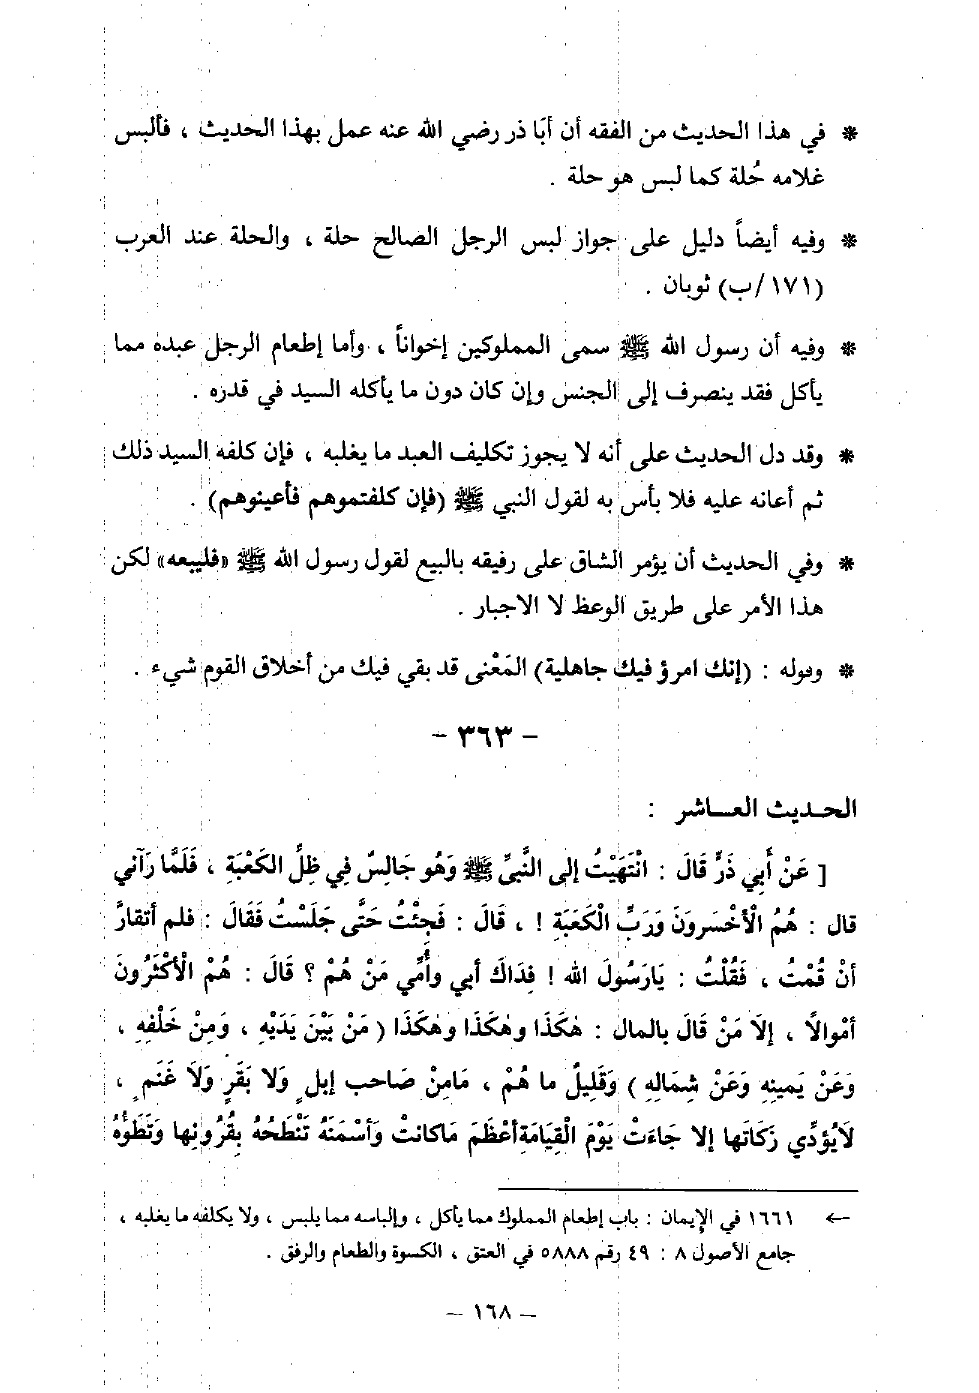 * في هذا الحديث من الفقه أن أبا ذر رضي الله عنه عمل بهذا الحديث ، فألبس
غلامه حُلة كما لبس هو حلة .
* وفيه أيضاً دليل على جواز لبس الرجل الصالح حلة ، والحلة عند العرب
(١٧١/ب) ثوبان .
* وفيه أن رسول الله ﷺ سمى المملوكين إخواناً ، وأما إطعام الرجل عبده مما
يأكل فقد ينصرف إلى الجنس وإن كان دون ما يأكله السيد في قدره .
* وقد دل الحديث على أنه لا يجوز تكليف العبد ما يغلبه ، فإن كلفه السيد ذلك
ثم أعانه عليه فلا بأس به لقول النبي ﷺ (فإن كلفتموهم فأعينوهم) .
* وفي الحديث أن يؤمر الشاق على رفيقه بالبيع لقول رسول الله ﷺ «فليبعه» لكن
هذا الأمر على طريق الوعظ لا الاجبار .
* وقوله : (إنك امرؤ فيك جاهلية) المَعْنى قد بقي فيك من أخلاق القوم شيء .
- ٣٦٣ -
الحديث العاشر :
[ عَنْ أَبي ذَرٍّ قَالَ : انْتَهَيْتُ إلى النَّبيِّ ﷺ وَهُو جَالِسٌ فِي ظِلِّ الكَعْبَةِ ، فَلَمَّا رَآني
قال : هُمُ الْأخْسَرونَ وَرَبِّ الْكَعَبَةِ ! ، قَالَ : فَجِئْتُ حَتَّى جَلَسْتُ فَقَالَ : فلم أتقارَّ
أنْ قُمْتُ ، فَقُلْتُ : يَارَسُولَ الله ! فِدَاكَ أبي وأُمِّي مَنْ هُمْ ؟ قَالَ : هُمْ الْأكْثَرُونَ
أمْوالاً ، إلا مَنْ قَالَ بالمال : هٰكَذَا وهٰكَذَا وهٰكَذَا ( مَنْ بَيْنَ يَدَيْهِ ، وَمِنْ خَلْفِهِ ،
وَعَنْ يَمينِهِ وَعَنْ شِمَالِهِ ) وَقَلِيلٌ ما هُمْ ، مَامِنْ صَاحب إبلٍ وَلا بَقَرٍ وَلاَ غَنَمٍ ،
لاَيُؤدِّي زَكَاتَها إلا جَاءَتْ يَوْمَ الْقِيَامَةِأعْظَمَ مَاكانتْ وَأسْمَنَهُ تَنْطَحُهُ بِقُرُونِها وَتَطَوُّهُ
← ١٦٦١ في الإيمان : باب إطعام المملوك مما يأكل ، وإلباسه مما يلبس ، ولا يكلفه ما يغلبه ،
جامع الأصول ٨ : ٤٩ رقم ٥٨٨٨ في العتق ، الكسوة والطعام والرفق .
- ١٦٨ -